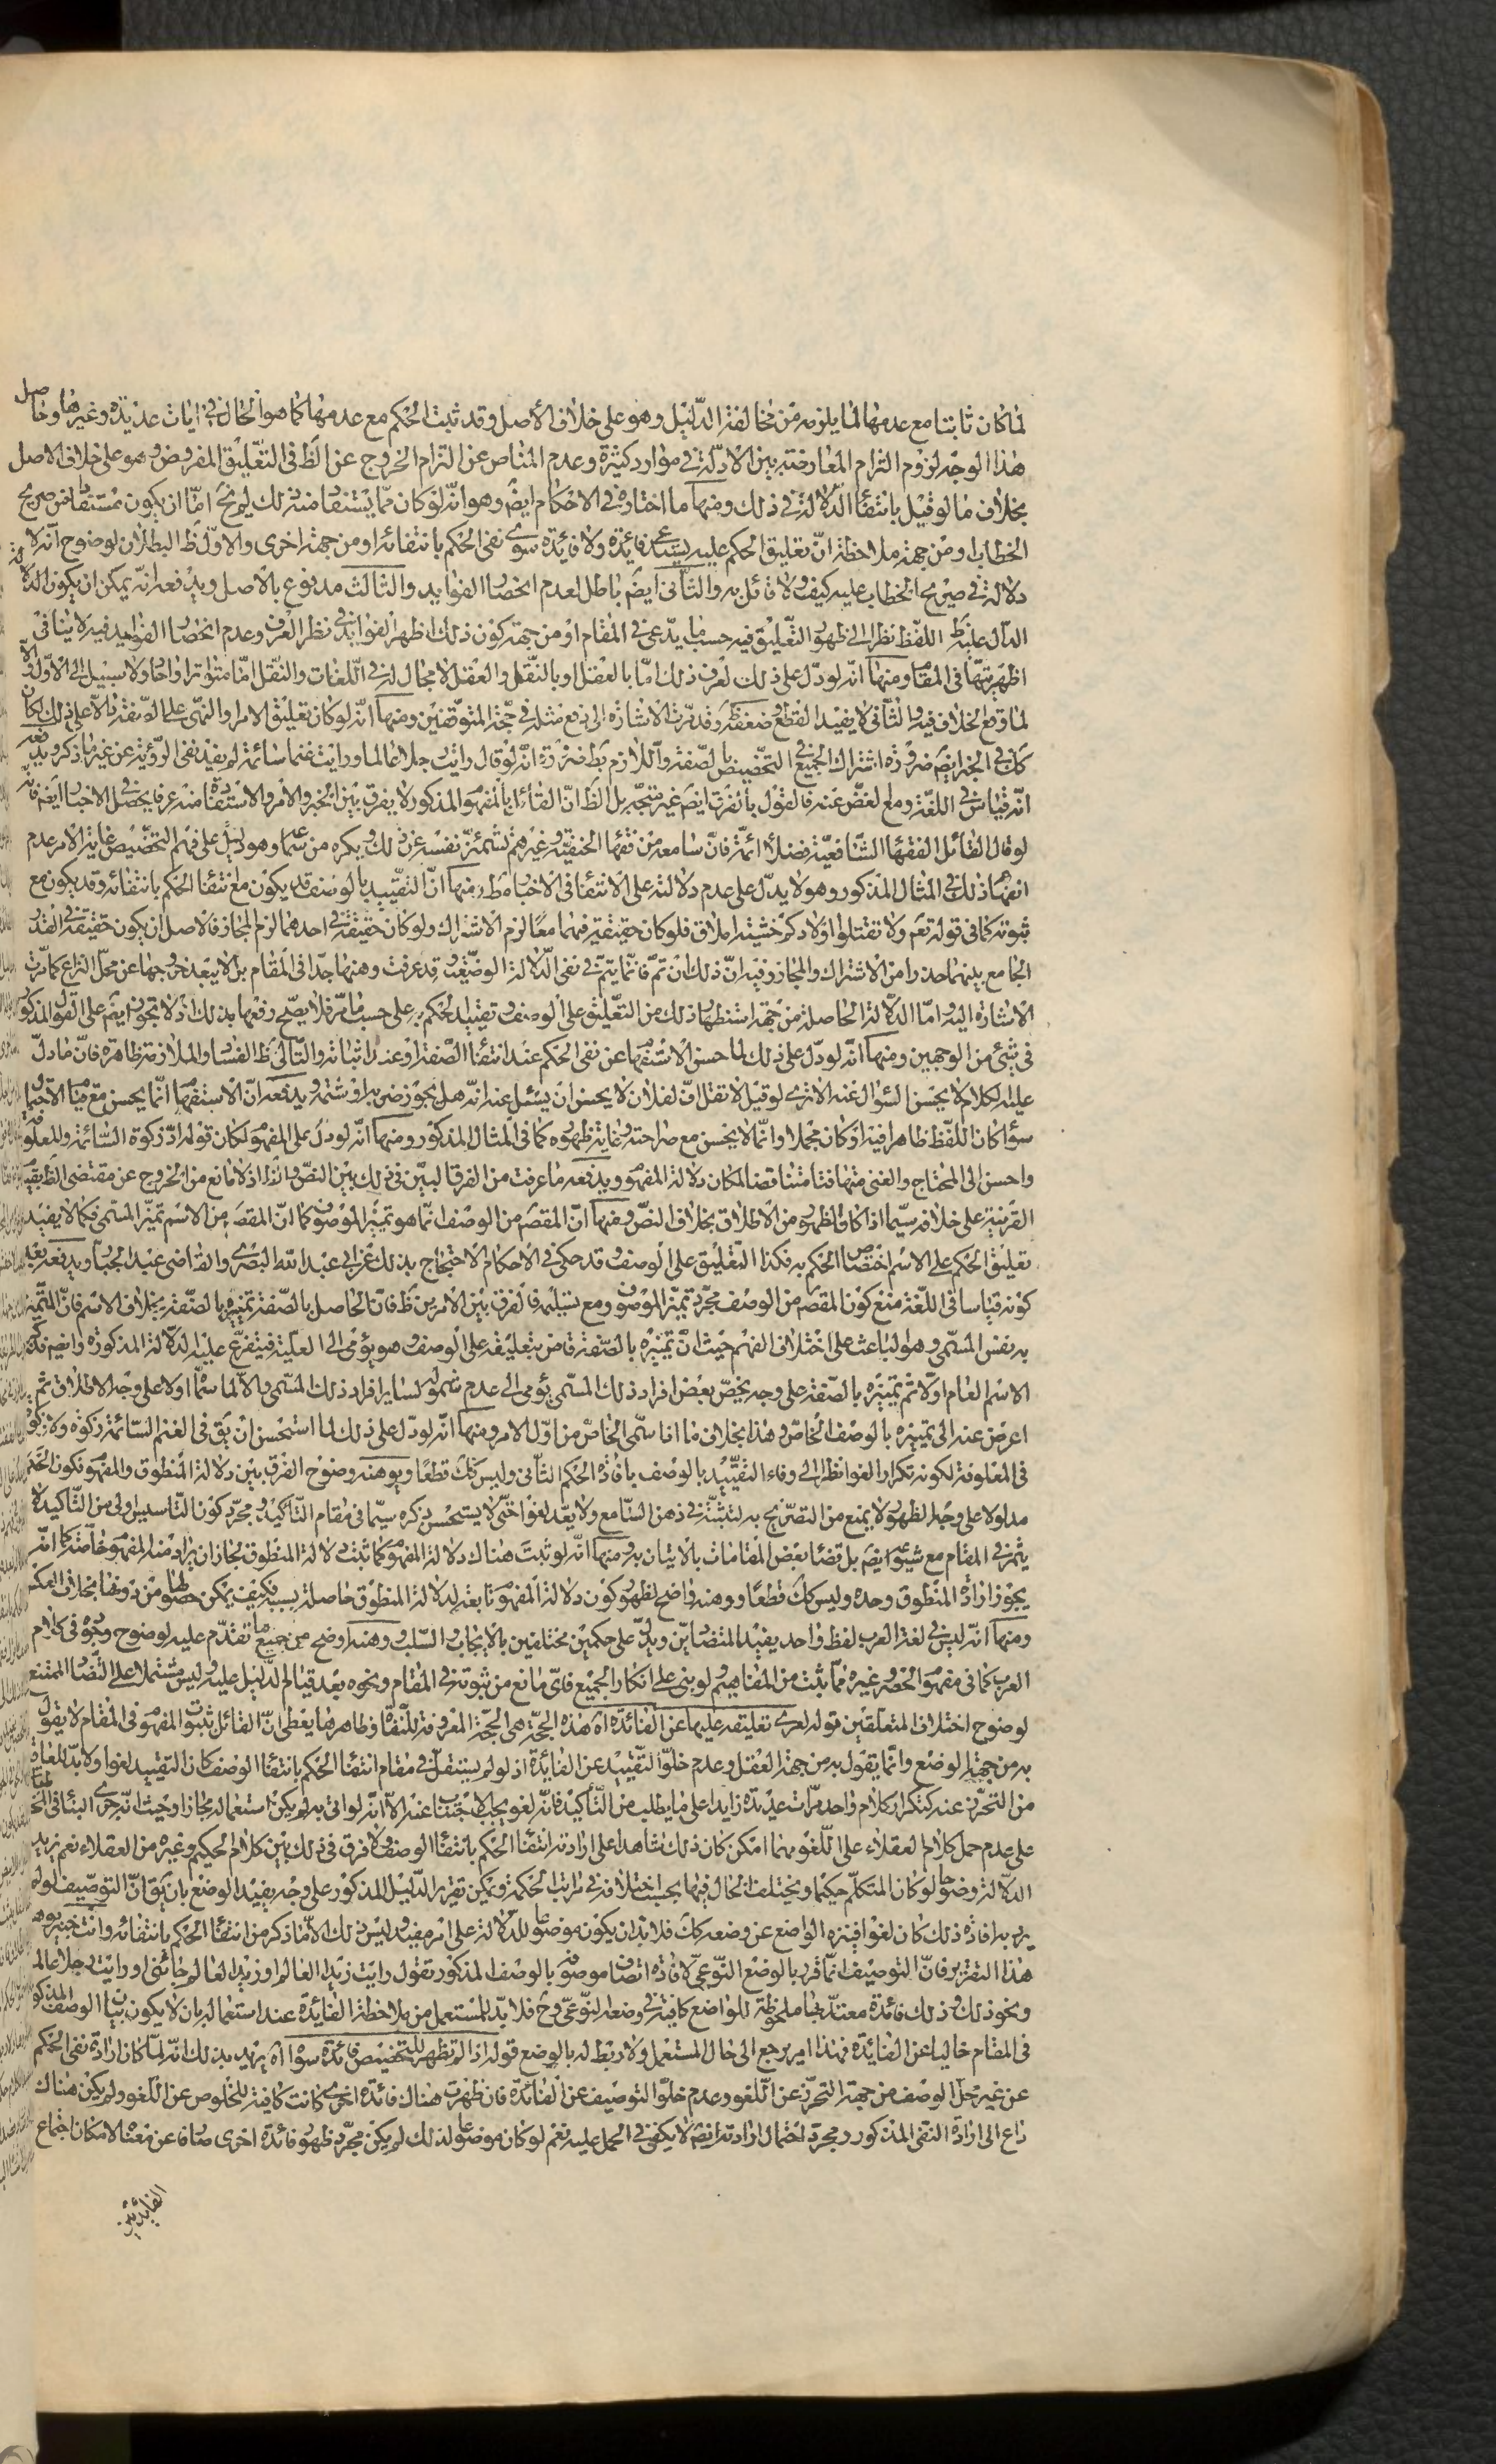 لما كان ثابتا مع عدمها لما يلزمه من مخالفة الدّليل وهو على خلاف الأصل وقد ثبت الحكم مع عدمها كما هو الحال فى ايات عديدة وغيرها وحاصل
هذا الوجه لزوم التزام المعارضة بين الادلّة فى موارد كثيرة وعدم المناص عن التزام الخروج عن الظ فى التّعليق المفروض وهو على خلاف الاصل
بخلاف ما لو قيل بانتفاء الدّلالة فى ذلك ومنها ما اختاره فى الاحكام ايضً وهو انّه لو كان ممّا يستفاد منه ذلك لم يخ امّا ان يكون مستفادا من صريح
الخطاب او من جهة ملاحظة انّ تعليق الحكم عليه يستدعى فائدة ولا فائدة سوى نفى الحكم بانتفائه او من جهة اخرى والاوّل ظ البطلان لوضوح انّه لا
دلالة فى صريح الخطاب عليه كيف ولا قائل به والثّانى ايضً باطل لعدم انحصار الفوايد والثالث مدفوع بالاصل ويدفعه انّه يمكن ان يكون الدلالة
الدّال عليه اللّفظ نظرا الى ظهور التّعليق فيه حسب ما يدّعى فى المقام او من جهة كون ذلك اظهر الفوايد فى نظر العرف وعدم انحصار الفوايد فيه لا ينافى
اظهريّتها فى المقام ومنها انّه لو دلّ على ذلك لعرف ذلك امّا بالعقل او بالنّقل والعقل لا مجال له فى اللّغات والنّقل امّا متواترا واحاد ولا سبيل الى الاوّل والّا
لما وقع الخلاف فيه والثّانى لا يفيد القطع وضعفه ظ وقد مرّت الاشارة الى دفع مثله فى حجّة المتوقّفين ومنها انّه لو كان تعليق الامر والنهى على الصّفة دالّا على ذلك لكان
كك فى الخبر ايضً ضرورة اشتراك الجميع فى التخصيص بالصّفة واللّازم بط ضرورة انّه لو قال رايت رجلا عالما ورايت غنما سائمة لم يفد نفى الرّؤية عن غير ما ذكر ويدفعه
انّه قياس فى اللّغة ومع الغضّ عنه فالقول بالفرق ايضً غير متّجه بل الظ انّ القائل بالمفهوم المذكور لا يفرق بين الخبر والامر والاستفادة منه عرفا يحصل فى الاخبار ايضً فانّه
لو قال القائل الفقهاء الشّافعيّة فضلاء ائمّة فانّ سامعه من فقهاء الحنفيّة وغيرهم تشمئزّ نفسه عن ذلك ويكره من سماعها وهو دليل على فهم التخصيص غاية الامر عدم
انفهام ذلك فى المثال المذكور وهو لا يدلّ على عدم دلالته على الانتفاء فى الاخبار مط ومنها انّ التقييد بالوصف قد يكون مع انتفاء الحكم بانتفائه وقد يكون مع
ثبوته كما فى قوله تعم ولا تقتلوا اولادكم خشية املاق فلو كان حقيقة فيهما معًا لزم الاشتراك ولو كان حقيقة فى احدهما لزم المجاز فالاصل ان يكون حقيقة فى القدر
الجامع بينهما حذرا من الاشتراك والمجاز وفيه انّ ذلك ان تمّ فانّما يتمّ فى نفى الدّلالة الوضعيّة وقد عرفت وهنها جدّا فى المقام بل لا يبعد خروجها عن محلّ النزاع كما مرّت
الاشارة اليه وامّا الدّلالة الحاصلة من جهة استظهار ذلك من التعليق على الوصف وتقييد الحكم به على حسب ما مرّ فلا يصحّ رفعها بذلك اذ لا تجوّز ايضً على القول المذكور
فى شئ من الوجهين ومنها انّه لو دلّ على ذلك لما حسن الاستفهام عن نفى الحكم عند انتفاء الصّفة او عند اثباته والتّالى ظ الفساد والملازمة ظاهرة فانّ ما دلّ
عليه الكلام لا يحسن السّؤال عنه الا ترى لو قيل لا تقل افّ لفلان لا يحسن ان يسئل عنه انّه هل يجوز ضربه او شتمه ويدفعه انّ الاستفهام انّما يحسن مع قيام الاحتمال
سواء كان اللّفظ ظاهرا فيه او كان مجملا وانّما لا يحسن مع صراحته وغاية ظهوره كما فى المثال المذكور ومنها انّه لو دلّ على المفهوم لكان قوله ادّ زكوة السّائمة والمعلوفة
واحسن الى المحتاج والغنى منها متناقضا لمكان دلالة المفهوم ويدفعه ما عرفت من الفرق البيّن فى ذلك بين النصّ والظ اذ لا مانع من الخروج عن مقتضى الظ بقيام
القرينة على خلافه سيّما اذا كانت اظهر من الاطلاق بخلاف النصّ ومنها انّ المقصم من الوصف انّما هو تميّز الموصوف كما انّ المقصم من الاسم تميّز المسمّى فكما لا يفيد
تعليق الحكم على الاسم اختصاص الحكم به فكذا التّعليق على الوصف وقد حكى فى الاحكام الاحتجاج بذلك عن ابى عبد الله البصرى والقاضى عبد الجبّار ويدفعه بعد
كونه قياسا فى اللّغة منع كون المقصم من الوصف مجرّد تميّز الموصوف ومع تسليمه فالفرق بين الامرين ظ فانّ الحاصل بالصّفة تميّزه بالصّفة بخلاف الاسم فانّ المتميّز
به نفس المسمّى وهو الباعث على اختلاف الفهم حيث انّ تميزه بالصّفة قاض بتعليقه على الوصف وهو يؤمى الى العلّية فيتفرّع عليه الدّلالة المذكورة وايضً فذكر
الاسم العام اوّلا ثم تميزه بالصّفة على وجه يخصّ بعض افراد ذلك المسمّى يؤمى الى عدم شموله لساير افراد ذلك المسمّى والّا لما سمّاه اولا على وجه الاطلاق ثم
اعرض عنه الى تميزه بالوصف الخاصّ وهذا بخلاف ما اذا سمّى الخاصّ من اوّل الامر ومنها انّه لو دلّ على ذلك لما استحسن ان يق فى الغنم السّائمة زكوة ولا زكوة
فى المعلوفة لكونه تكرارا لغوا نظرا الى وفاء التقييد بالوصف بافادة الحكم الثّانى وليس كك قطعًا ويوهنه وضوح الفرق بين دلالة المنطوق والمفهوم فكون الحكم
مدلولا على وجه الظهور لا يمنع من التصريح به لتثبّته فى ذهن السّامع ولا يعدّ لغوا حتّى لا يستحسن ذكره سيّما فى مقام التّأكيد ومجرّد كون التّاسيس اولى من التّاكيد لا
يثمر فى المقام مع شيوعه ايضً بل قضاء بعض المقامات بالاتيان به ومنها انّه لو ثبت هناك دلالة المفهوم كما ثبت دلالة المنطوق لجاز ان يراد منه المفهوم خاصّة كما انّه
يجوز ارادة المنطوق وحده وليس كك قطعًا ووهنه واضح لظهور كون دلالة المفهوم تابعة لدلالة المنطوق حاصلة بسببه فكيف يمكن حصولها من دونها بخلاف العكس
ومنها انّه ليس فى لغة العرب لفظ واحد يفيد المتضادّين ويدلّ على حكمين مختلفين بالايجاب والسّلب ووهنه اوضح من جميع ما تقدّم عليه لوضوح وجوده فى كلام
العرب كما فى مفهوم الحصر وغيره ممّا ثبت من المفاهيم ولو بنى على انكار الجميع فاىّ مانع من ثبوته فى المقام ونحوه بعد قيام الدّليل عليه وليس مشتملا على التّضاد الممتنع
لوضوح اختلاف المتعلّقين قوله لعرى تعليقه عليها عن الفائدة اه هذه الحجّة هى الحجّة المعروفة للنفاة وظاهرها يعطى انّ القائل بثبوت المفهوم فى المقام لا يقول
به من جهة الوضع وانّما يقول به من جهة العقل وعدم خلوّ التّقييد عن الفائدة اذ لو لم يستقلّ فى مقام انتفاء الحكم بانتفاء الوصف كان التقييد لغوا ولا بدّ للعاقل
من التحرّز عنه كتكرار كلام واحد مرّات عديدة زايدا على ما يطلب من التّأكيد فانّه لغو يجب الاجتناب عنه الّا انّه لو اتى به لم يكن استعماله مجازا وحيث انّه جرى البناء فى المخاطبات
على عدم حمل كلام العقلاء على اللّغو مهما امكن كان ذلك شاهدا على ارادته انتفاء الحكم بانتفاء الوصف ولا فرق فى ذلك بين كلام الحكيم وغيره من العقلاء نعم يزيد
الدلالة وضوحا لو كان المتكلّم حكيما ويختلف الحال فيها بحسب اختلافه فى مراتب الحكمة ويمكن تقرير الدّليل المذكور على وجه يفيد الوضع بان يق انّ التوصيف لو لم
يرد به افادة ذلك كان لغوا فيتنزه الواضع عن وضعه كك فلا بدّ ان يكون موضوعا للدلالة على امر مفيد وليس ذلك الّا ما ذكر من انتفاء الحكم بانتفائه وانت خبير بوهن
هذا التقرير فانّ التوصيف انّما قرّر بالوضع النّوعى لافادة اتصاف موصوفه بالوصف المذكور تقول رايت زيدا العالم او زيد العالم جائنى او رايت رجلا عالما
ونحو ذلك وذلك فائدة معتدّ بها ملحوظة للواضع كافية فى وضعه النّوعى وح فلا بدّ للمستعمل من ملاحظة الفائدة عند استعماله بان لا يكون بيان الوصف المذكور
فى المقام خاليا عن الفائدة فهذا امر يرجع الى حال المستعمل ولا ربط له بالوضع قوله اذا لم تظهر للتخصيص فائدة سواه اه يريد بذلك انّه لمّا كان ارادة نفى الحكم
عن غير محلّ الوصف من جهة التحرّز عن اللّغو وعدم خلوّ التوصيف عن الفائدة فان ظهرت هناك فائدة اخرى كانت كافية للخلوص عن اللّغو ولم يكن هناك
داع الى ارادة النفى المذكور ومجرد احتمال ارادته ايضً لا يكفى فى الحمل عليه نعم لو كان موضوعا لذلك لم يكن مجرّد ظهور فائدة اخرى صارفا عن معناه لامكان اجتماع
الفائدتين